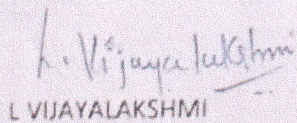 L. Vijayalakshmi
L VIJAYALAKSHMI